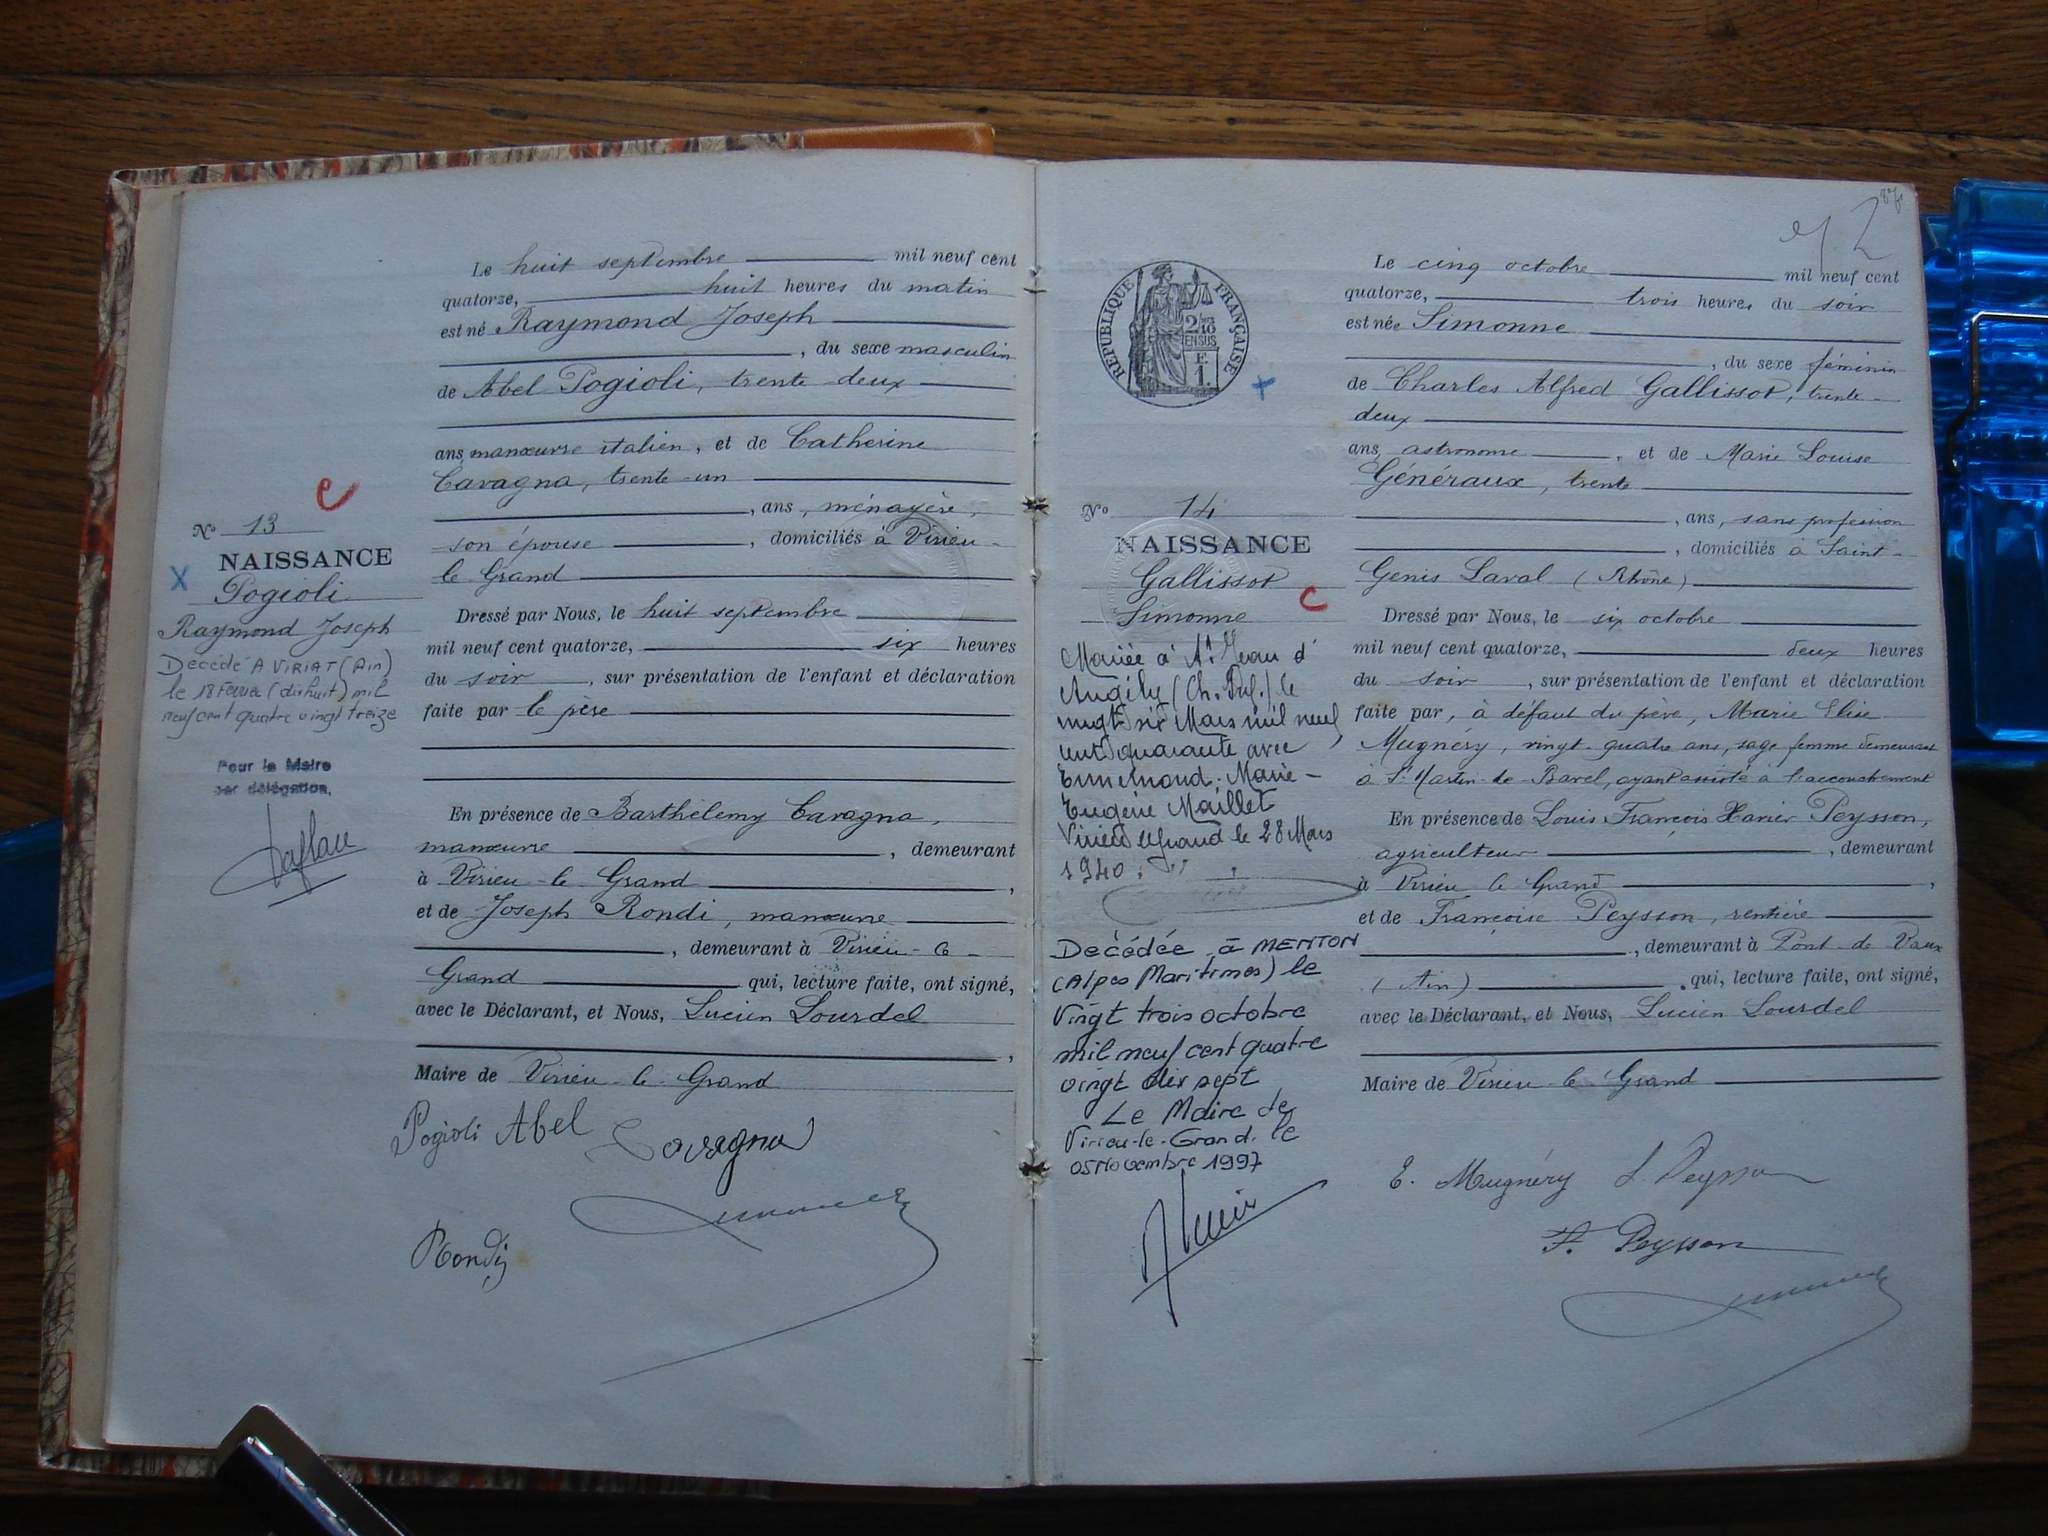 Le huit septembre mil neuf cent
quatorze, huit heures du matin
est né Raymond Joseph
, du sexe masculin
de Abel Pogioli, trente deux
ans, manœuvre italien, et de Catherine
Cavagna, trente-un
, ans, ménagère,
son épouse , domiciliés à Virieu-
le Grand
Dressé par Nous, le huit septembre
mil neuf cent quatorze, six heures
du soir , sur présentation de l'enfant et déclaration
faite par le père
En présence de Barthélemy Cavagna,
manœuvre , demeurant
à Virieu-le Grand ,
et de Joseph Rondi, manœuvre
, demeurant à Virieu-le-
Grand qui, lecture faite, ont signé,
avec le Déclarant, et Nous, Lucien Lourdel
,
Maire de Virieu-le-Grand
Pogioli Abel Cavagna
Rondi
No 13
NAISSANCE
Pogioli
Raymond Joseph
Décédé A VIRIAT (Ain)
le 18 Février (dixhuit) mil
neuf cent quatre vingt treize
Pour le Maire
par délégation,
RÉPUBLIQUE FRANÇAISE
2/10
EN SUS
F.
1.
No 14
NAISSANCE
Gallissot
Simonne
Mariée à St Jean d'
Angély (Ch. Inf.) le
vingt six Mars mil neuf
cent quarante avec
Ennemond-Marie-
Eugène Maillet
Virieu le Grand le 28 Mars
1940.
Décédée à MENTON
(Alpes Maritimes) le
Vingt trois octobre
mil neuf cent quatre
vingt dix sept
Le Maire de
Virieu-le-Grand. le
05 Novembre 1997
Le cinq octobre mil neuf cent
quatorze, trois heures du soir
est née Simonne
, du sexe féminin
de Charles Alfred Gallissot, trente-
deux
ans, astronome , et de Marie Louise
Généraux, trente
, ans, sans profession
, domiciliés à Saint-
Genis Laval (Rhône)
Dressé par Nous, le six octobre
mil neuf cent quatorze, deux heures
du soir , sur présentation de l'enfant et déclaration
faite par, à défaut du père, Marie Elise
Mugnéry, vingt-quatre ans, sage femme demeurant
à St Martin-de-Bavel, ayant assisté à l'accouchement
En présence de Louis François Xavier Peysson,
agriculteur , demeurant
à Virieu le Grand ,
et de Françoise Peysson, rentière
, demeurant à Pont-de-Vaux
(Ain) , qui, lecture faite, ont signé,
avec le Déclarant, et Nous, Lucien Lourdel
Maire de Virieu-le-Grand
E. Mugnéry L. Peysson
F. Peysson